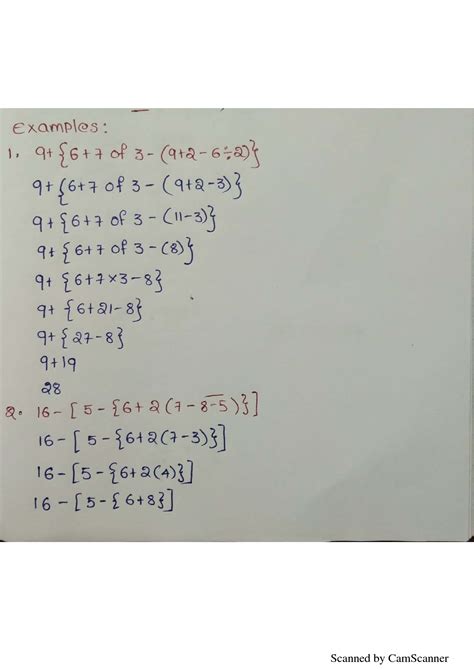 Examples:
1. 9+{6+7 of 3-(9+2-6÷2)}
9+{6+7 of 3-(9+2-3)}
9+{6+7 of 3-(11-3)}
9+{6+7 of 3-(8)}
9+{6+7×3-8}
9+{6+21-8}
9+{27-8}
9+19
28
2. 16-[5-{6+2(7-8̅-̅5̅)}]
16-[5-{6+2(7-3)}]
16-[5-{6+2(4)}]
16-[5-{6+8}]
Scanned by CamScanner